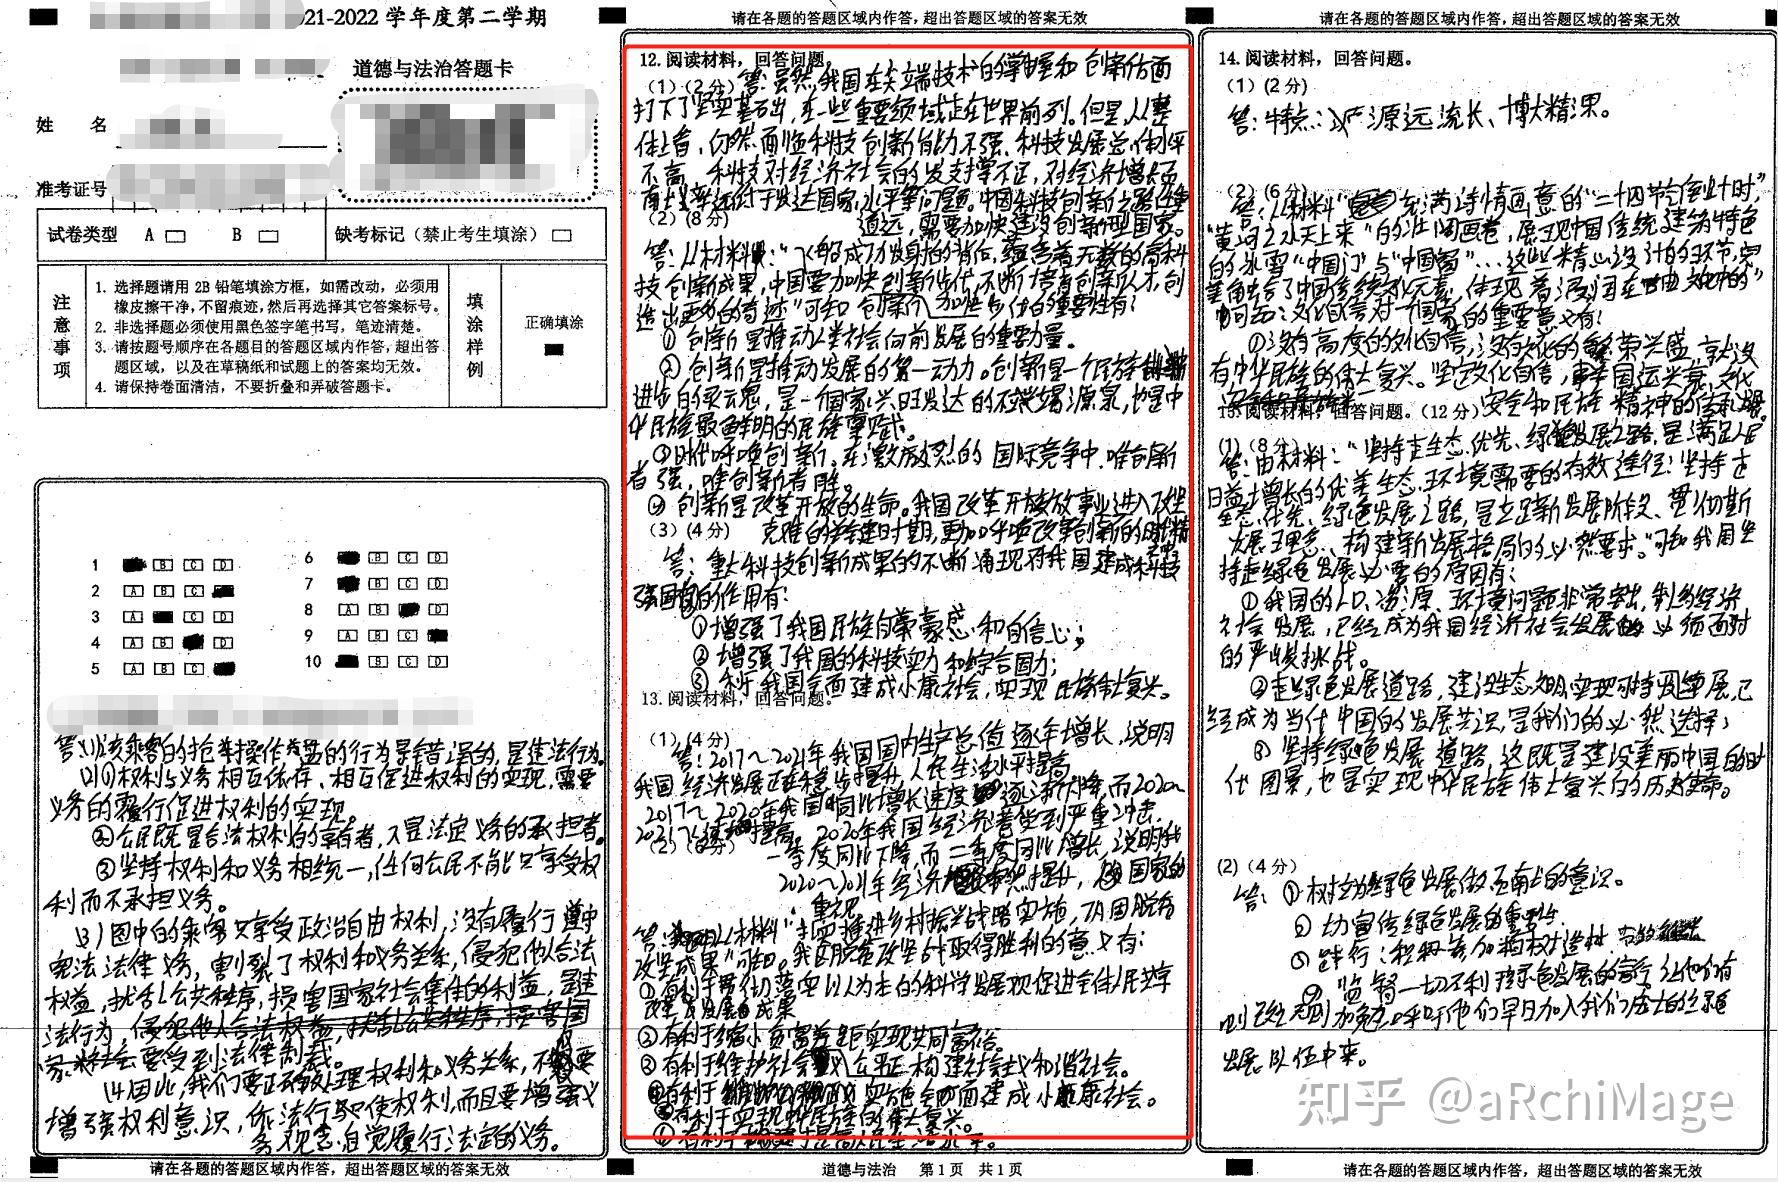 021-2022 学年度第二学期
道德与法治答题卡
姓 名
准考证号
试卷类型 A B 缺考标记（禁止考生填涂）
注意事项
1. 选择题请用 2B 铅笔填涂方框，如需改动，必须用
橡皮擦干净，不留痕迹，然后再选择其它答案标号。
2. 非选择题必须使用黑色签字笔书写，笔迹清楚。
3. 请按题号顺序在各题目的答题区域内作答，超出答
题区域，以及在草稿纸和试题上的答案均无效。
4. 请保持卷面清洁，不要折叠和弄破答题卡。
填涂样例
正确填涂
1 B C D
2 A B C
3 A C D
4 A B D
5 A B C
6 B C D
7 B C D
8 A B D
9 A B C
10 B C D
的行为是错误的，是违法行为。
(2)①权利与义务相互依存、相互促进权利的实现，需要
义务的履行促进权利的实现。
②公民既是合法权利的享有者，又是法定义务的承担者。
③坚持权利和义务相统一，任何公民不能只享受权
利而不承担义务。
(3)图中的乘客只享受政治自由权利，没有履行遵守
宪法法律义务，割裂了权利和义务关系，侵犯他人合法
权益，扰乱公共秩序，损害国家社会集体的利益，是违
法行为，
要受到法律制裁。
(4)因此，我们要正确处理权利和义务关系，不仅要
增强权利意识，依法行使权利，而且要增强义
务观念，自觉履行法定的义务。
请在各题的答题区域内作答，超出答题区域的答案无效
请在各题的答题区域内作答，超出答题区域的答案无效
12. 阅读材料，回答问题。
（1）（2 分） 答：虽然，我国在尖端技术的掌握和创新方面
打下了坚实基础，在一些重要领域走在世界前列。但是，从整
体上看，仍然面临科技创新能力不强、科技发展总体水平
不高、科技对经济社会的发支撑不足，对经济增长
贡献率远低于发达国家水平等问题。中国科技创新之路任重
（2）（8 分） 道远，需要加快建设创新型国家。
答：从材料“飞船成功发射的背后，蕴含着无数的高科
技创新成果，中国要加快创新步伐，不断培育创新人才，创
造出更多的奇迹”可知创新加快步伐的重要性有：
①创新是推动人类社会向前发展的重要力量。
②创新是推动发展的第一动力。创新是一个民族
进步的灵魂，是一个国家兴旺发达的不竭源泉，也是中
华民族最鲜明的民族禀赋。
③时代呼唤创新。在激烈的国际竞争中，唯创新
者强，唯创新者胜。
④创新是改革开放的生命。我国改革开放事业进入攻坚
（3）（4 分） 克难的关键时期，更加呼唤改革创新的时代精
神。
答：重大科技创新成果的不断涌现对我国建成科技
强国的作用有：
①增强了我国民族自豪感和自信心；
②增强了我国的科技实力和综合国力；
③利于我国全面建成小康社会，实现民族伟大复兴。
13. 阅读材料，回答问题。
（1）（4 分）
答：2017～2021年我国国内生产总值逐年增长，说明
我国经济发展正在稳步提升，人民生活水平提高
2017～2020年我国同比增长速度逐渐下降，而2020～
2020年我国经济遭受到严重冲击，
（2）
一季度同比下降，而二季度同比增长，说明我
2020～2021年经济 提升，国家的
重视
答：从材料“扎实推进乡村振兴战略实施，巩固脱贫
攻坚成果”可知。我国脱贫攻坚战取得胜利的意义有：
①有利于贯彻落实以人为本的科学发展观促进全体人民共享
改革发展成果
②有利于缩小贫富差距实现共同富裕。
③有利于维护社会公平正构建社会主义和谐社会。
④有利于 实施全面建成小康社会。
有利于实现中华民族的伟大复兴。
道德与法治 第 1 页 共 1 页
请在各题的答题区域内作答，超出答题区域的答案无效
14. 阅读材料，回答问题。
（1）（2 分）
答：特点：源远流长、博大精深。
（2）（6 分）
答：从材料“充满诗情画意的“二十四节气倒计时”，
“黄河之水天上来”的壮阔画卷，展现中国传统建筑特色
的冰雪“中国门”与“中国窗”…这些精心设计的环节，完
美融合了中国传统文化元素，体现着浸润在
可知：文化自信对一个国家的重要意义有：
①没有高度的文化自信，没有文化的繁荣兴盛，就没
有中华民族的伟大复兴。坚定文化自信，事关国运兴衰，文化
安全和民族精神的传承
15. 阅读材料，回答问题。（12 分）
（1）（8 分）
答：由材料：“坚持走生态优先、绿色发展之路，是满足人民
日益增长的优美生态环境需要的有效途径！坚持走
生态优先、绿色发展之路，是立足新发展阶段、贯彻新
发展理念、构建新发展格局的必然要求。”可知我国坚
持走绿色发展必要的原因有：
①我国的人口、资源、环境问题非常突出，制约经济
社会发展，已经成为我国经济社会发展必须面对
的严峻挑战。
②走绿色发展道路，建设生态文明，实现可持续发展，已
经成为当代中国的发展共识，是我们的必然选择；
③坚持绿色发展道路，这既是建设美丽中国的时
代图景，也是实现中华民族伟大复兴的历史使命。
(2)（4 分）
答：①树立为绿色发展做贡献的意识。
②切宣传绿色发展的重要性
③践行：积极参加植树造林
④监督一切不利绿色发展的言行，让他们有
则改之无则加勉。呼吁他们早日加入我们庞大的绿色
发展队伍中来。
请在各题的答题区域内作答，超出答题区域的答案无效
知乎 @aRchiMage